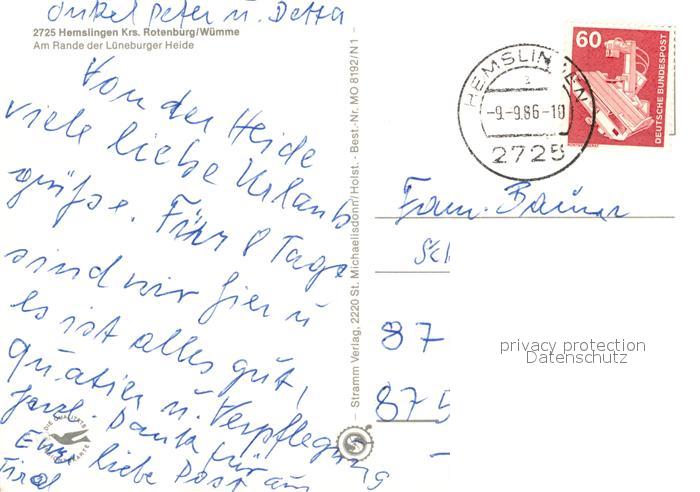 Onkel Peter u. Detta
2725 Hemslingen Krs. Rotenburg/Wümme
Am Rande der Lüneburger Heide
Von der Heide
viele liebe Urlaubs
grüße. Für 8 Tage
sind wir hier u
es ist alles gut,
Quatier u. Verpflegung
Herzl. Dank für
Eure liebe Post aus
Tirol
DIE QUALITÄTS
– Stramm Verlag, 2220 St. Michaelisdonn/Holst. - Best.-Nr. MO 8192/N1 –
HEMSLINGEN
a
-9.-9.86-10
2725
60
DEUTSCHE BUNDESPOST
Fam.
Sch
87
875
privacy protection
Datenschutz